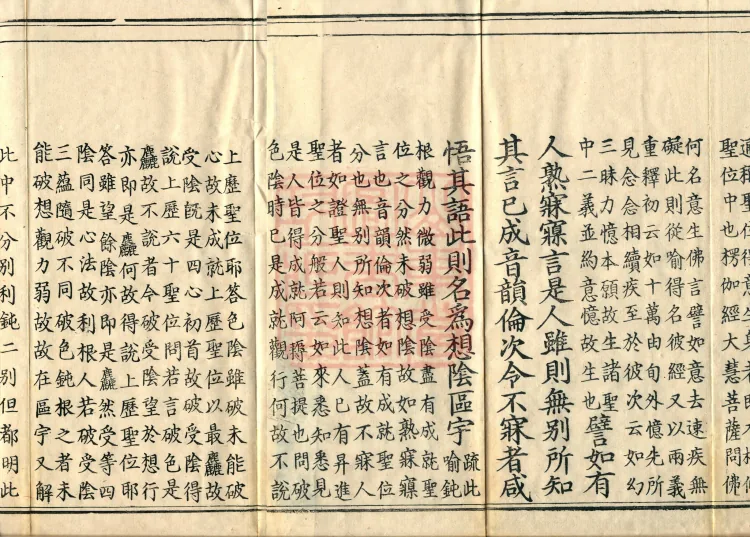 聖位中聖位也楞伽經大慧菩薩問佛
何名意生佛言譬如意去速疾無
礙此則從喻得名彼經又以兩義
重釋初云如十萬由旬外憶先所
見念念相續疾至於彼次云如幻
三昧力憶本願故生諸聖
中二義並約意憶故生也譬如有
人熟寐寱言是人雖則無別所知
其言已成音韻倫次令不寐者咸
悟其語此則名為想陰區宇疏此
喻鈍
根觀力微弱雖受陰盡有成就聖
位之分然未破想陰故如熟寐寱
言也音韻倫次者如有成就聖位
分也無別所知想陰蓋故不寐人
者如證聖人則知此人已有昇進
聖位之分般若云如來悉知悉見
是人皆得成就阿耨菩提也問破
色陰時已是成就觀行何故不說
上歷聖位耶答色陰雖破未能破
心故未成就上歷聖位以最麤故
受陰既是四心初首故破受陰得
說上歷六十聖位問若言破色是
麤故不說者今破受陰望於想行
亦即是麤何故得說上歷聖位耶
答雖望餘陰亦即是麤然受等四
陰同是心法故利根人若破受陰
三蘊隨破不同破色鈍根之者未
能破想觀力弱故故在區宇又解
此中不分別利鈍二別但都明此